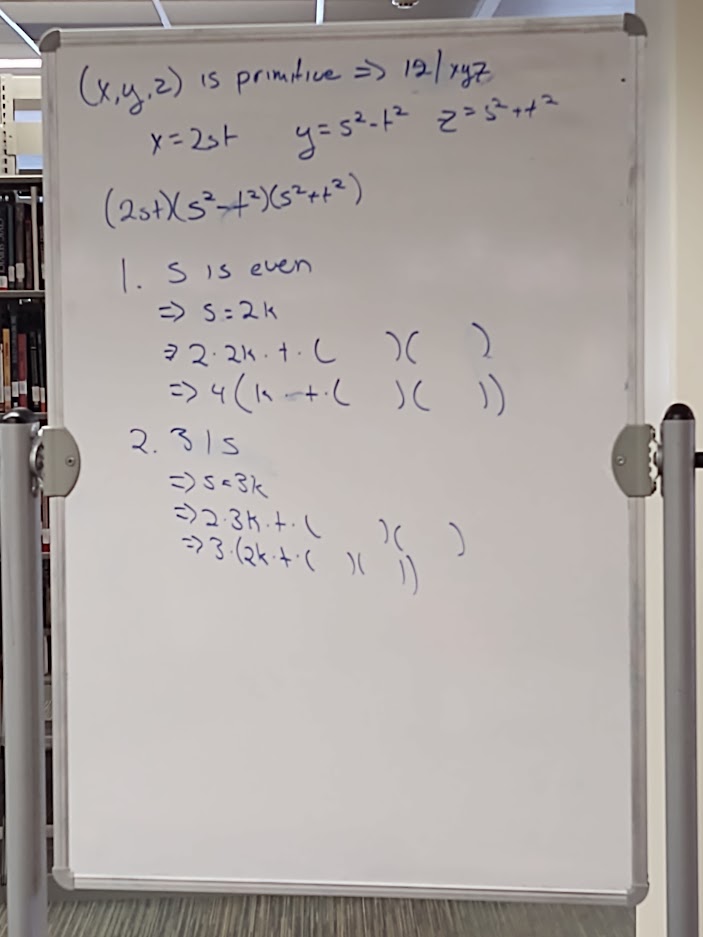 (x,y,z) is primitive => 12/xyz
x=2st y=s²-t² z=s²+t²
(2st)(s²-t²)(s²+t²)
1. s is even
=> s=2k
=> 2·2k·t·( )( )
=> 4(k·t·( )( ))
2. 3|s
=> s=3k
=> 2·3k·t·( )( )
=> 3·(2k·t·( )( ))